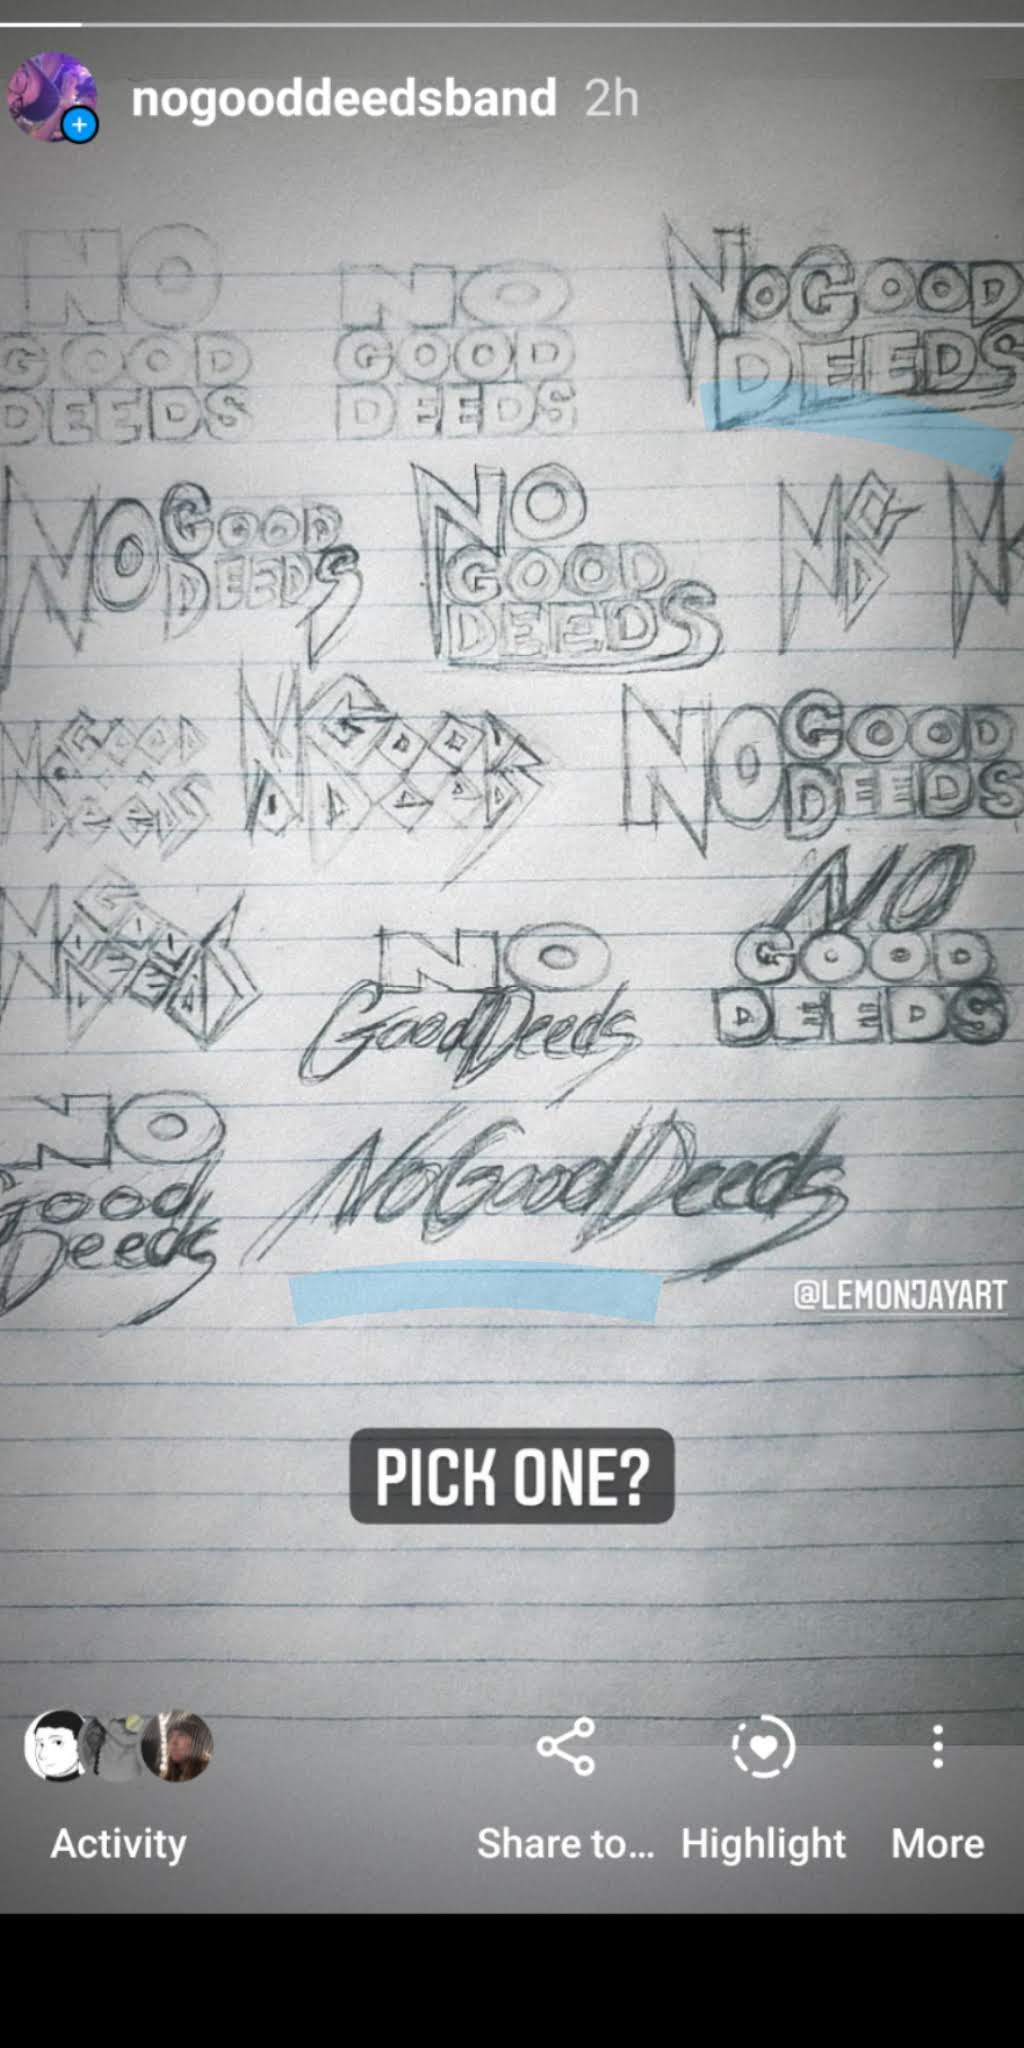 nogooddeedsband 2h
NO
GOOD
DEEDS
NO
GOOD
DEEDS
NOGOOD
DEEDS
NO GOOD
DEEDS
NO
GOOD
DEEDS
NO GOOD
DEEDS
NO
GoodDeeds
NO
GOOD
DEEDS
NO
Good
Deeds
NoGoodDeeds
@LEMONJAYART
PICK ONE?
Activity
Share to...
Highlight
More